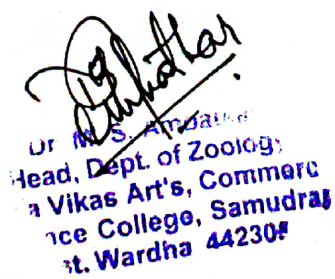 Dr M. S.
Head, Dept. of Zoology
a Vikas Art's, Commerc
nce College, Samudra
st. Wardha 44230